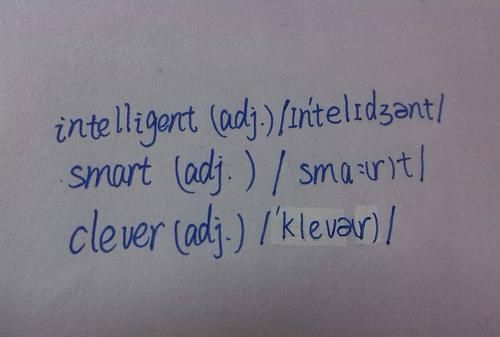 intelligent (adj.) /ɪn'telɪdʒənt/
smart (adj.) / smɑː(r)t/
clever (adj.) /'klevə(r)/